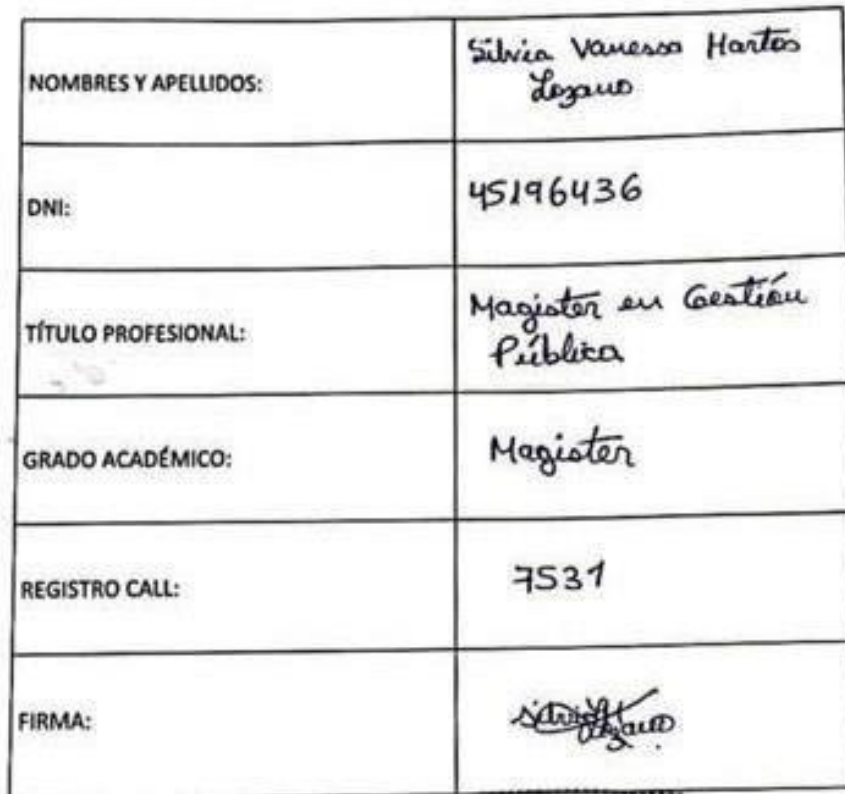 NOMBRES Y APELLIDOS:
Silvia Vanessa Hartos
Lozano
DNI:
45196436
TÍTULO PROFESIONAL:
Magister en Gestión
Pública
GRADO ACADÉMICO:
Magister
REGISTRO CALL:
7531
FIRMA:
Lozano